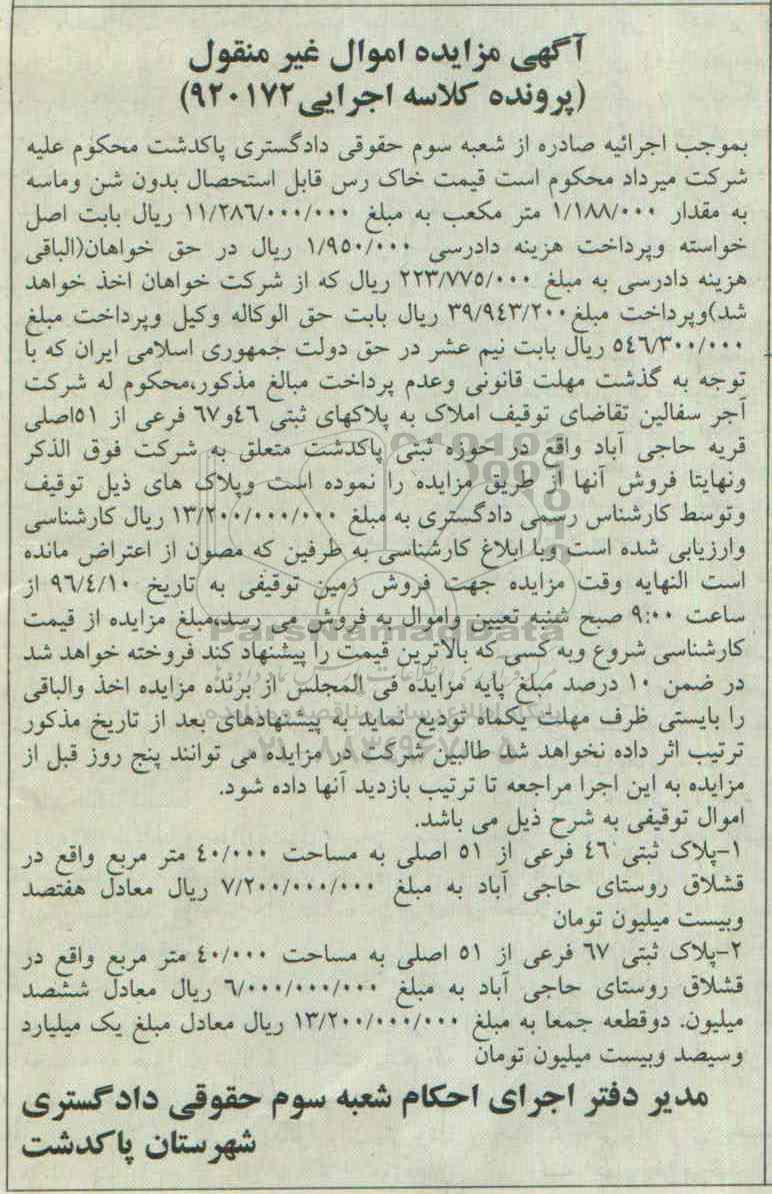 آگهی مزایده اموال غیر منقول
(پرونده کلاسه اجرایی۹۲۰۱۷۲)
بموجب اجرائیه صادره از شعبه سوم حقوقی دادگستری پاکدشت محکوم علیه
شرکت میرداد محکوم است قیمت خاک رس قابل استحصال بدون شن وماسه
به مقدار ۱/۱۸۸/۰۰۰ متر مکعب به مبلغ ۱۱/۲۸۶/۰۰۰/۰۰۰ ریال بابت اصل
خواسته وپرداخت هزینه دادرسی ۱/۹۵۰/۰۰۰ ریال در حق خواهان(الباقی
هزینه دادرسی به مبلغ ۲۲۳/۷۷۵/۰۰۰ ریال که از شرکت خواهان اخذ خواهد
شد)وپرداخت مبلغ۳۹/۹۴۳/۲۰۰ ریال بابت حق الوکاله وکیل وپرداخت مبلغ
۵٤٦/۳۰۰/۰۰۰ ریال بابت نیم عشر در حق دولت جمهوری اسلامی ایران که با
توجه به گذشت مهلت قانونی وعدم پرداخت مبالغ مذکور،محکوم له شرکت
آجر سفالین تقاضای توقیف املاک به پلاکهای ثبتی ٤٦و٦۷ فرعی از ۵۱اصلی
قریه حاجی آباد واقع در حوزه ثبتی پاکدشت متعلق به شرکت فوق الذکر
ونهایتا فروش آنها از طریق مزایده را نموده است وپلاک های ذیل توقیف
وتوسط کارشناس رسمی دادگستری به مبلغ ۱۳/۲۰۰/۰۰۰/۰۰۰ ریال کارشناسی
وارزیابی شده است وبا ابلاغ کارشناسی به طرفین که مصون از اعتراض مانده
است النهایه وقت مزایده جهت فروش زمین توقیفی به تاریخ ۹٦/٤/۱۰ از
ساعت ۹:۰۰ صبح شنبه تعیین واموال به فروش می رسد،مبلغ مزایده از قیمت
کارشناسی شروع وبه کسی که بالاترین قیمت را پیشنهاد کند فروخته خواهد شد
در ضمن ۱۰ درصد مبلغ پایه مزایده فی المجلس از برنده مزایده اخذ والباقی
را بایستی ظرف مهلت یکماه تودیع نماید به پیشنهادهای بعد از تاریخ مذکور
ترتیب اثر داده نخواهد شد طالبین شرکت در مزایده می توانند پنج روز قبل از
مزایده به این اجرا مراجعه تا ترتیب بازدید آنها داده شود.
اموال توقیفی به شرح ذیل می باشد.
۱-پلاک ثبتی ٤٦ فرعی از ۵۱ اصلی به مساحت ٤۰/۰۰۰ متر مربع واقع در
قشلاق روستای حاجی آباد به مبلغ ۷/۲۰۰/۰۰۰/۰۰۰ ریال معادل هفتصد
وبیست میلیون تومان
۲-پلاک ثبتی ٦۷ فرعی از ۵۱ اصلی به مساحت ٤۰/۰۰۰ متر مربع واقع در
قشلاق روستای حاجی آباد به مبلغ ٦/۰۰۰/۰۰۰/۰۰۰ ریال معادل ششصد
میلیون. دوقطعه جمعا به مبلغ ۱۳/۲۰۰/۰۰۰/۰۰۰ ریال معادل مبلغ یک میلیارد
وسیصد وبیست میلیون تومان
مدیر دفتر اجرای احکام شعبه سوم حقوقی دادگستری
شهرستان پاکدشت
ParsNamadData